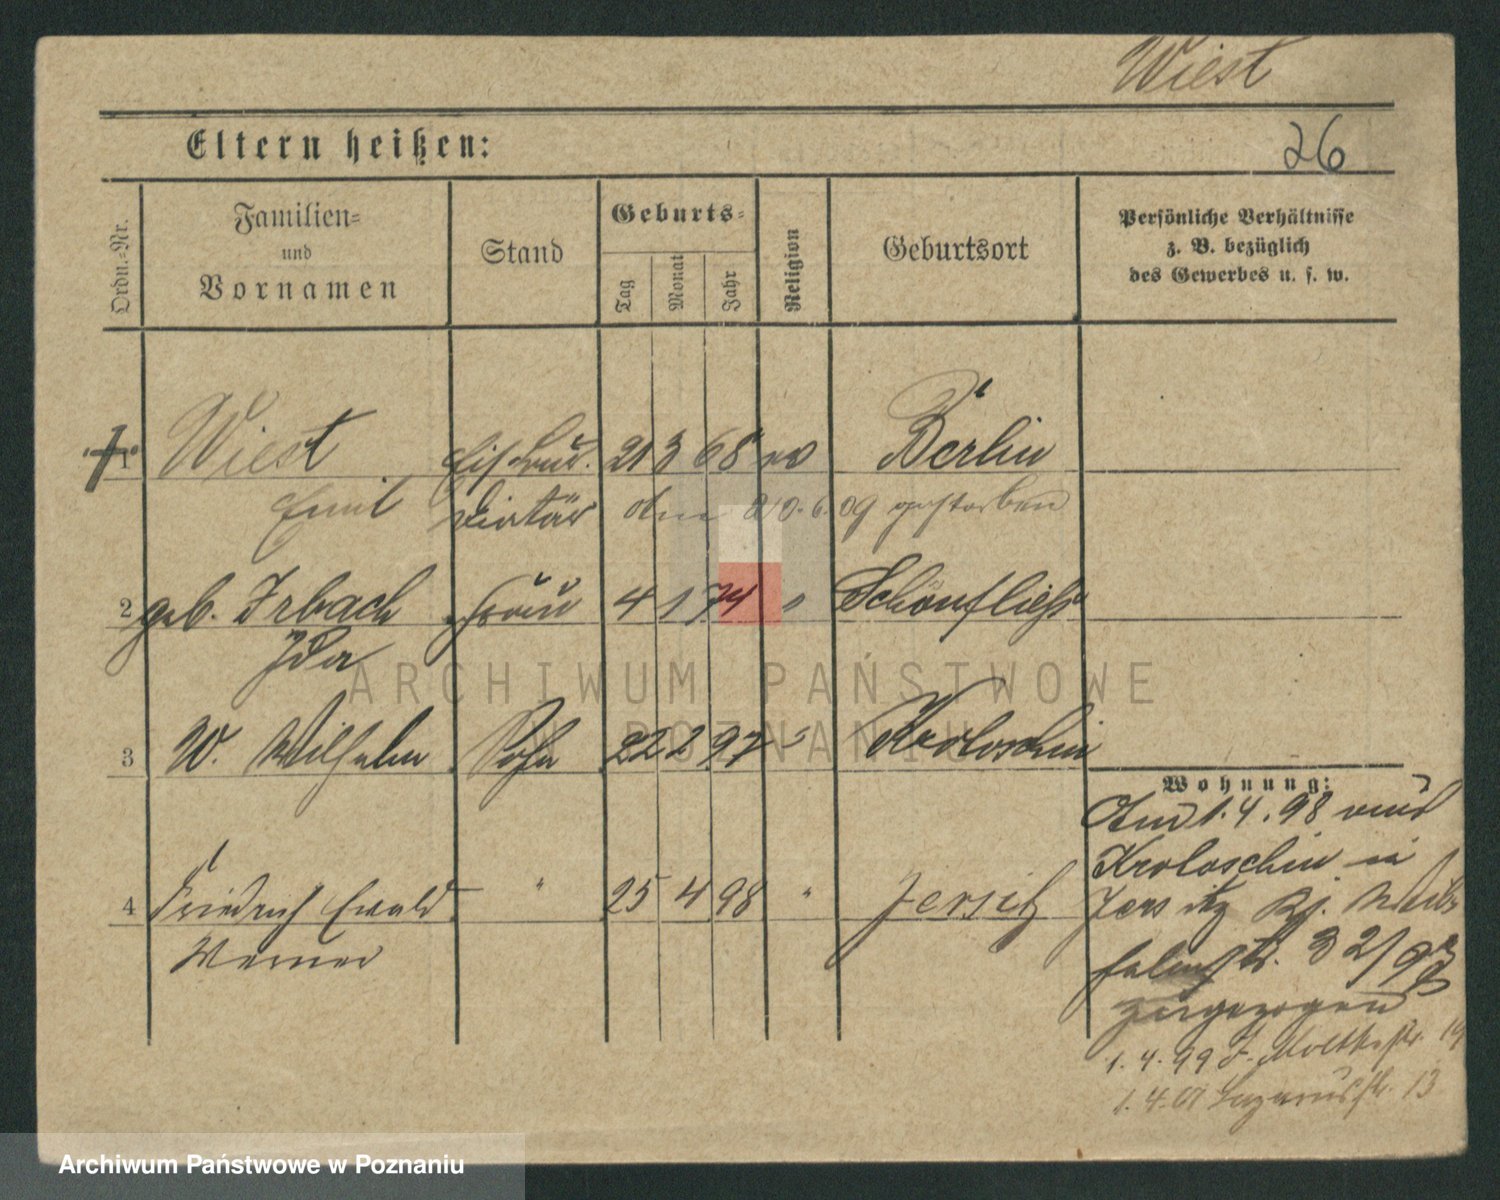 Wiest
Eltern heißen:
26
Ordn.-Nr.
Familien-
und
Vornamen
Stand
Geburts-
Tag
Monat
Jahr
Religion
Geburtsort
Persönliche Verhältnisse
z. B. bezüglich
des Gewerbes u. s. w.
1 Wiest 21 3 68 Berlin
Emil gestorben
2 geb. Irbach Frau 4 1 74 " Schönfliess
Ida
3 W. Wilhelm Sohn 22 2 97 " Krotoschin
4 Friedrich Ewald " 25 4 98 " Jersitz
Werner
Wohnung:
Am 1.4.98 von
Krotoschin in
Jersitz
32/93
zugezogen
1.4.99 J. Moltkestr.
1.4.01 Lazarusstr. 13
ARCHIWUM PAŃSTWOWE
W POZNANIU
Archiwum Państwowe w Poznaniu